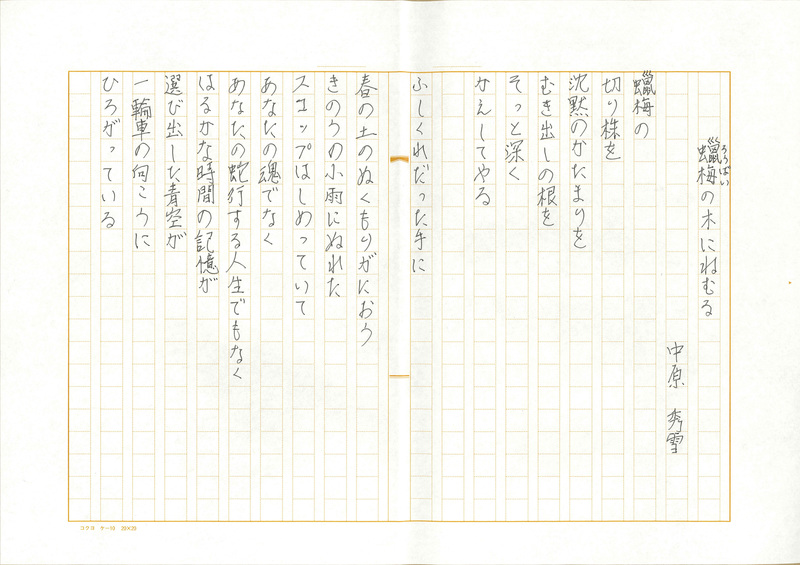 蠟梅の木にねむる
ろうばい
中原　秀雪
蠟梅の
切り株を
沈黙のかたまりを
むき出しの根を
そっと深く
かえしてやる
ふしくれだった手に
春の土のぬくもりがにおう
きのうの小雨にぬれた
スコップはしめっていて
あなたの魂でなく
あなたの蛇行する人生でもなく
はるかな時間の記憶が
選び出した青空が
一輪車の向こうに
ひろがっている
コクヨ ケー10 20×20